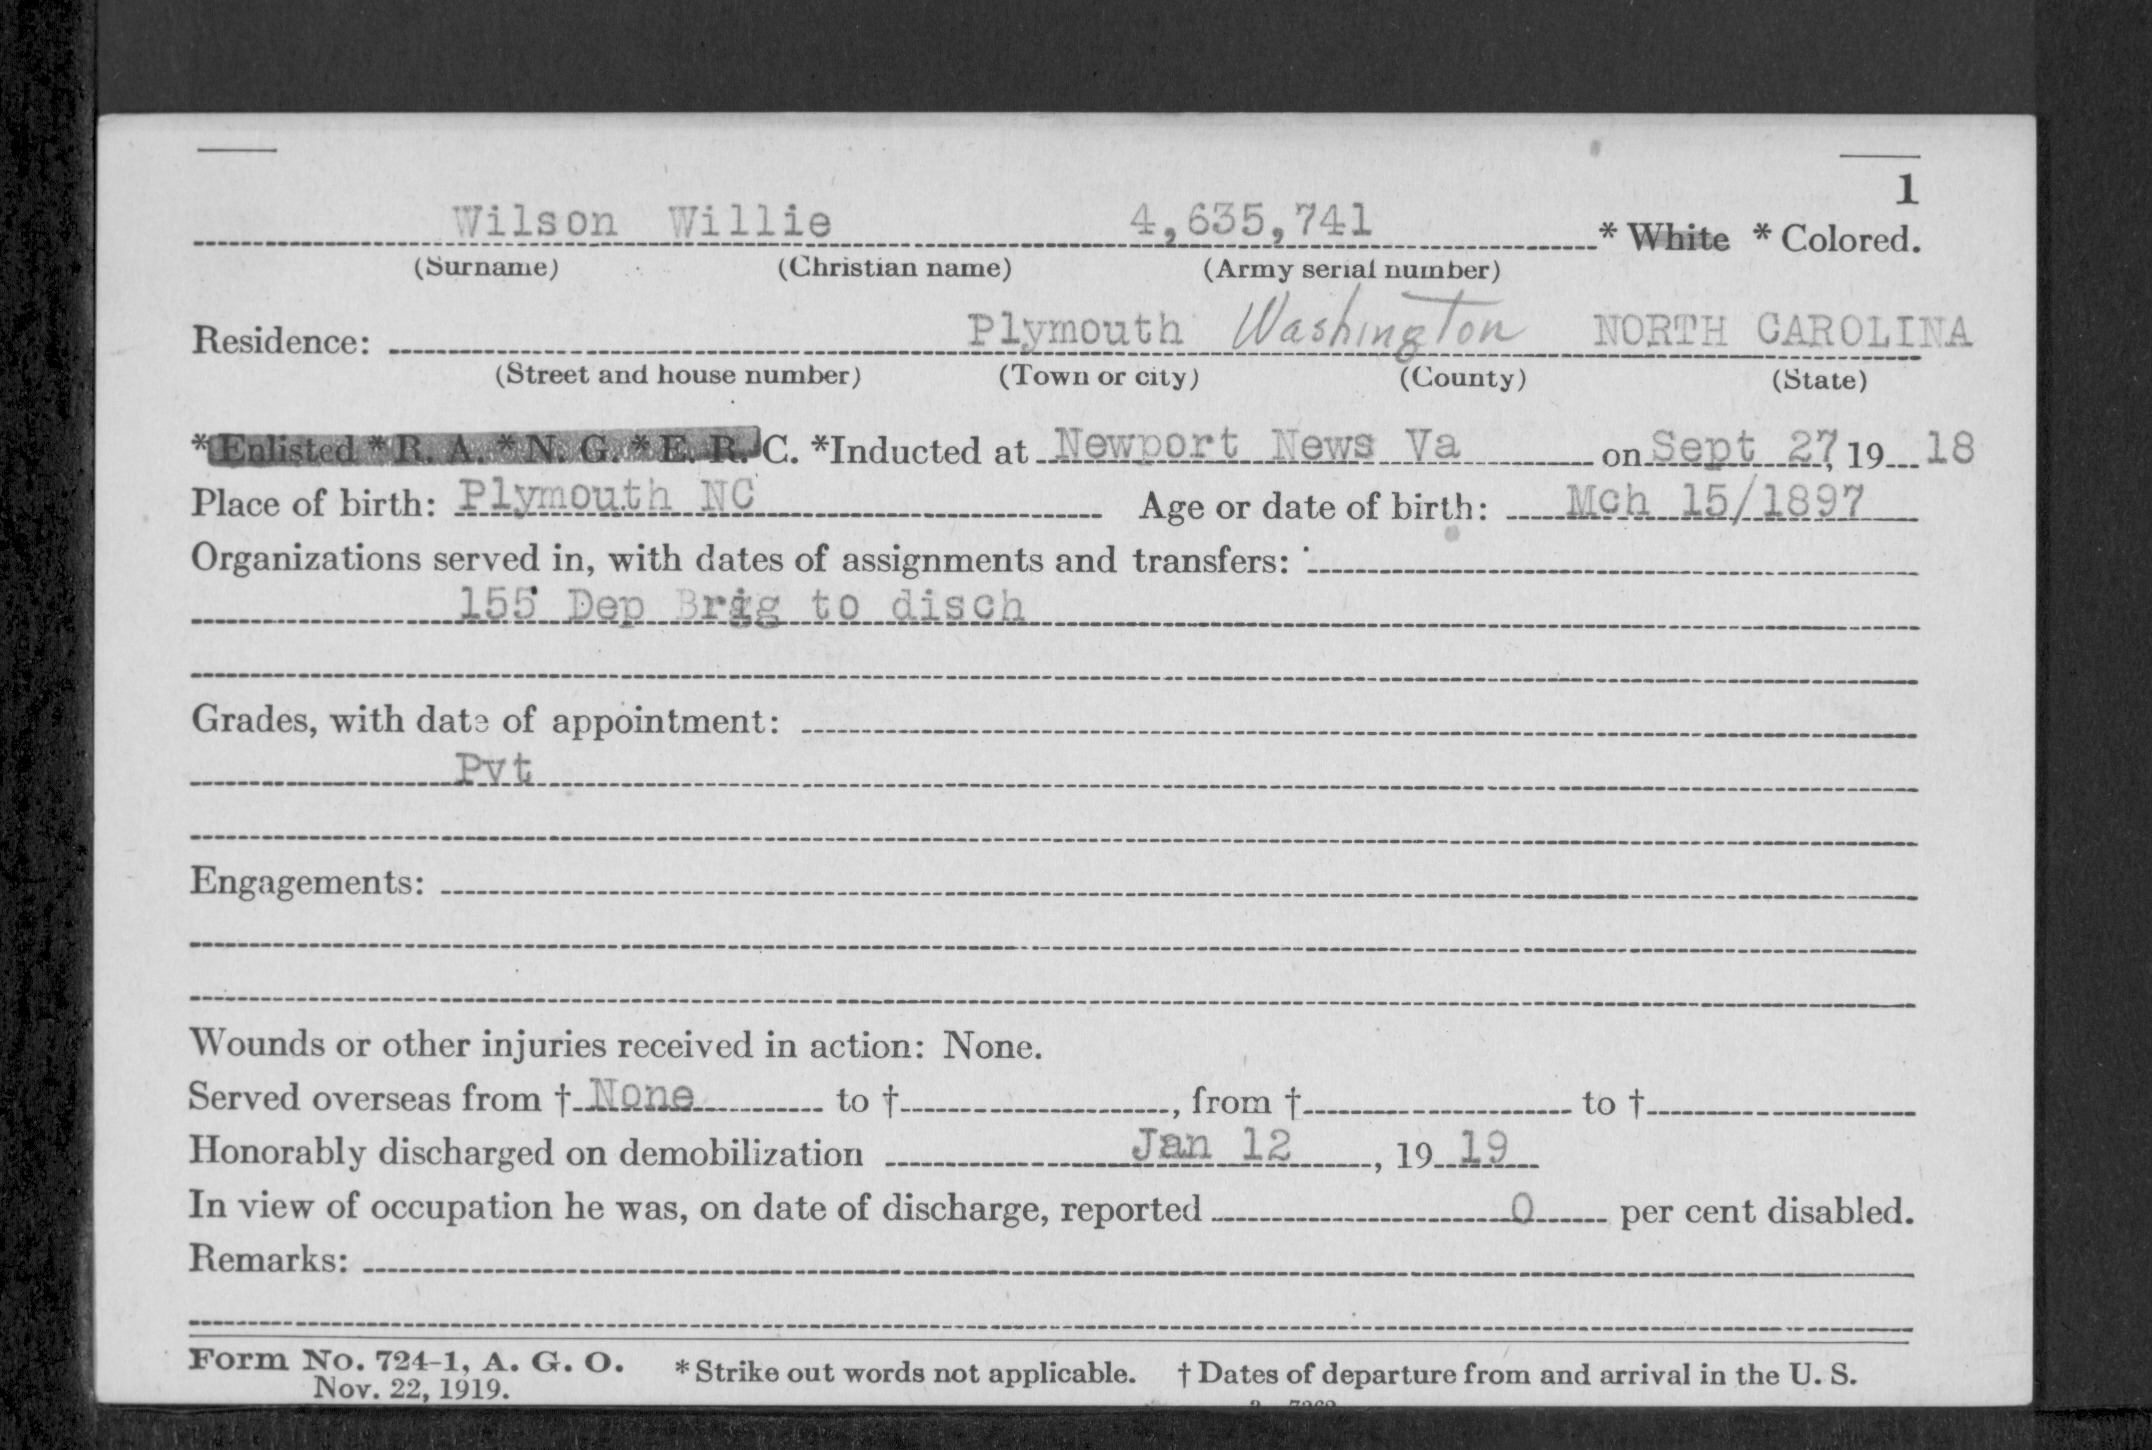 1
Wilson Willie 4,635,741 * White * Colored.
(Surname) (Christian name) (Army serial number)
Residence: Plymouth Washington NORTH CAROLINA
(Street and house number) (Town or city) (County) (State)
*Enlisted *R. A. *N. G. *E. R. C. *Inducted at Newport News Va on Sept 27, 19 18
Place of birth: Plymouth NC Age or date of birth: Mch 15/1897
Organizations served in, with dates of assignments and transfers:
155 Dep Brig to disch
Grades, with date of appointment:
Pvt
Engagements:
Wounds or other injuries received in action: None.
Served overseas from † None to †, from † to †
Honorably discharged on demobilization Jan 12, 19 19
In view of occupation he was, on date of discharge, reported 0 per cent disabled.
Remarks:
Form No. 724-1, A. G. O. * Strike out words not applicable. † Dates of departure from and arrival in the U. S.
Nov. 22, 1919.